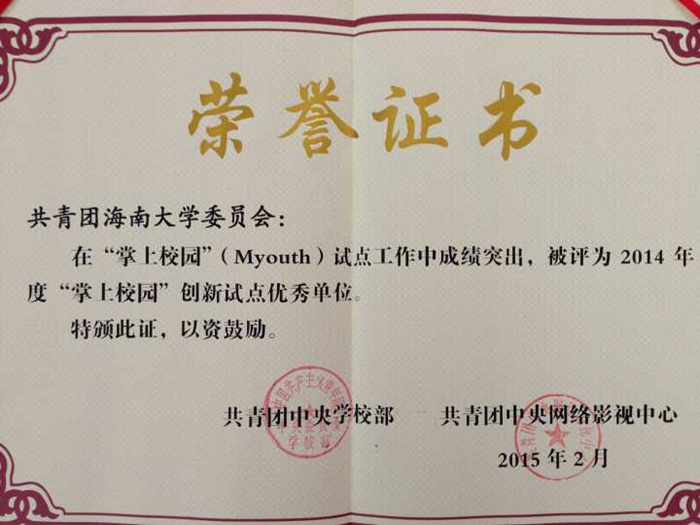 荣誉证书
共青团海南大学委员会：
在“掌上校园”（Myouth）试点工作中成绩突出，被评为 2014 年
度“掌上校园”创新试点优秀单位。
特颁此证，以资鼓励。
共青团中央学校部 共青团中央网络影视中心
2015 年 2 月